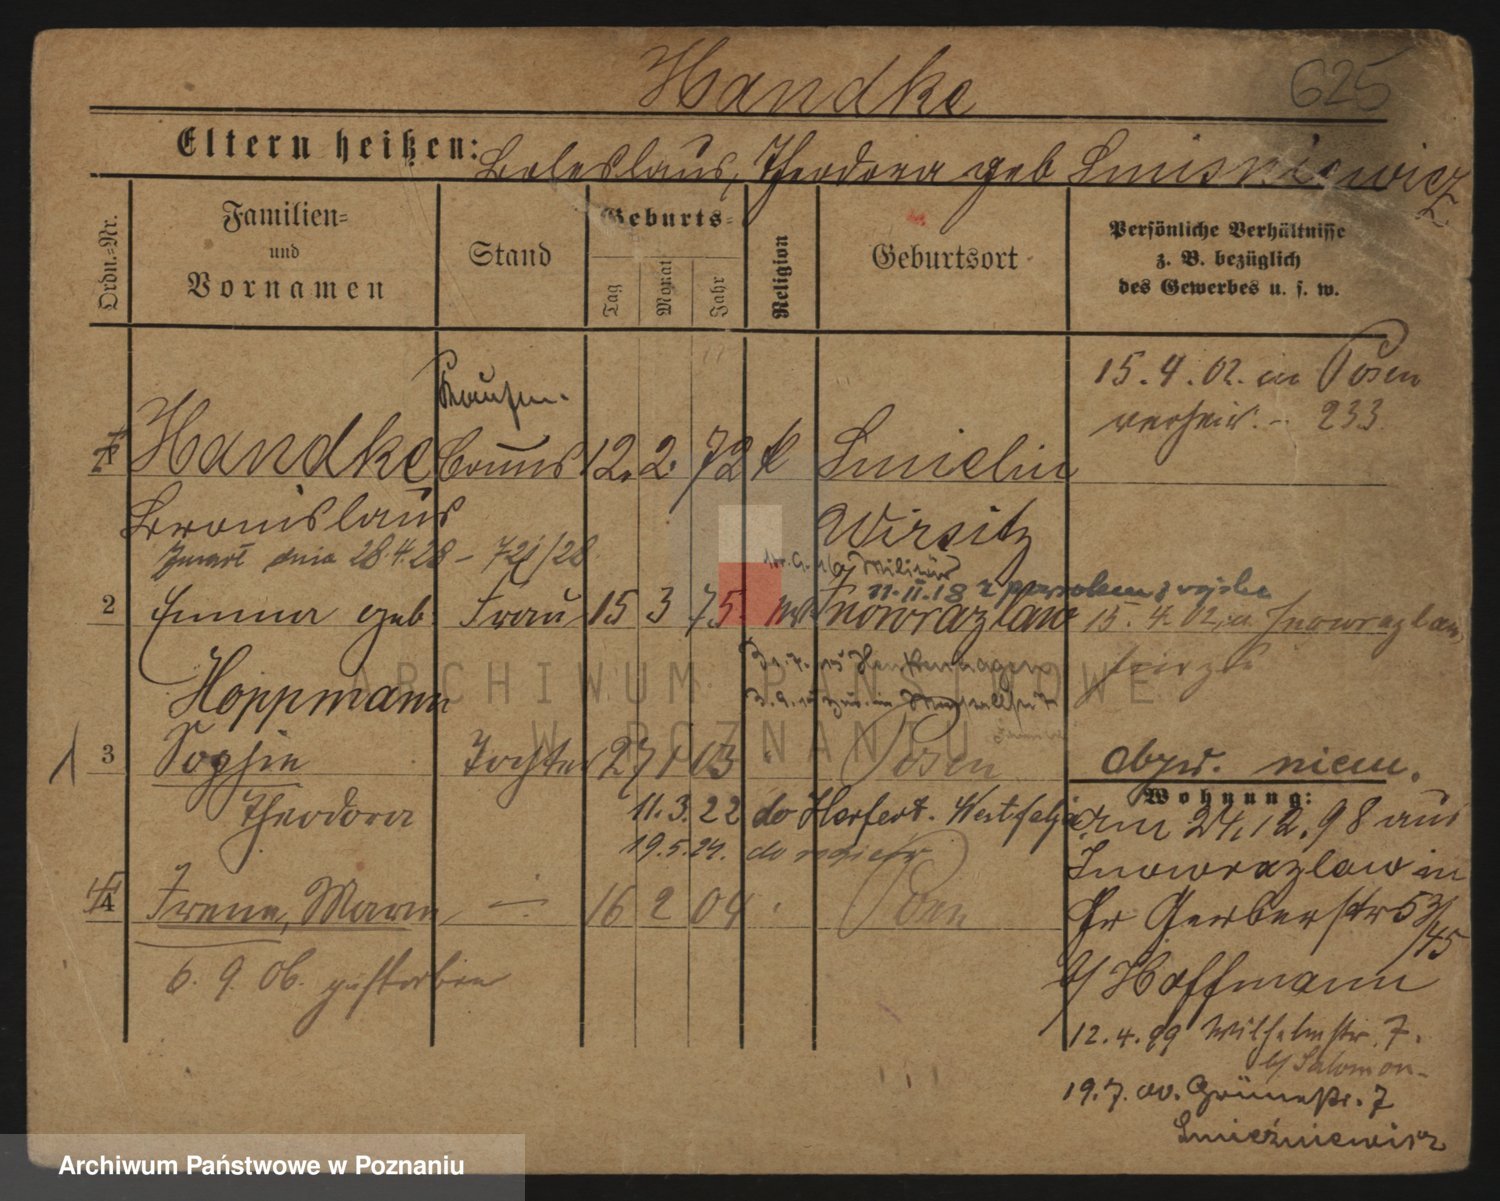 Handke
625
Eltern heißen: Boleslaus, Theodora geb
Ordn.-Nr.
Familien- und Vornamen
Stand
Geburts-
Tag
Monat
Jahr
Religion
Geburtsort
Persönliche Verhältnisse
z. B. bezüglich
des Gewerbes u. s. w.
15. 4. 02. in Posen
verheir. - 233
Kaufm.
1 Handke 12. 2. 72 k
Bronislaus Wirsitz
Zmarł dnia 28.4.28 - 721/28
Militär
11.II.18 z
2 Emma geb. Frau 15 3 75. Inowrazlaw 15. 4. 02. a. Inowrazlaw
Hoppmann
3 Sophie Tochter 27 1 03 Posen
Theodora
obyw. niem.
Wohnung:
11.3.22 do Herfort. Westfalja
19.5.24. do
4 Irene, Maria 16 2 04 Posen
6. 9. 06. gestorben
am 24.12.98 aus
Inowrazlaw in
Gerberstr 53/45
b/ Hoffmann
12.4.99 Wilhelmstr. 7.
b/ Salomon
19.7. 00. Grünestr. 7
ARCHIWUM PAŃSTWOWE
W POZNANIU
Archiwum Państwowe w Poznaniu